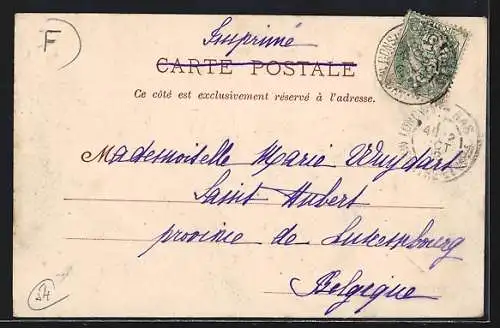 F
Imprimé
CARTE POSTALE
Ce côté est exclusivement réservé à l'adresse.
Mademoiselle Marie Wuydart
Saint Hubert
province de Luxembourg
Belgique